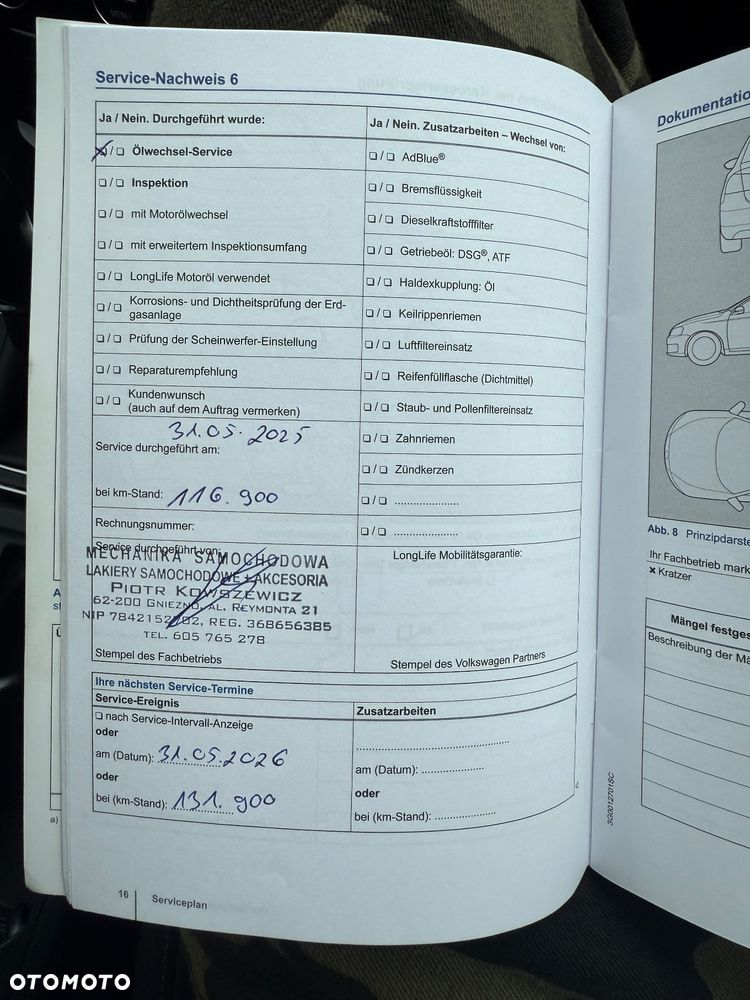 Service-Nachweis 6
Ja / Nein. Durchgeführt wurde:
❑ / ❑ Ölwechsel-Service
❑ / ❑ Inspektion
❑ / ❑ mit Motorölwechsel
❑ / ❑ mit erweitertem Inspektionsumfang
❑ / ❑ LongLife Motoröl verwendet
❑ / ❑ Korrosions- und Dichtheitsprüfung der Erd-
gasanlage
❑ / ❑ Prüfung der Scheinwerfer-Einstellung
❑ / ❑ Reparaturempfehlung
❑ / ❑ Kundenwunsch
(auch auf dem Auftrag vermerken)
31.05.2025
Service durchgeführt am:
bei km-Stand: 116.900
Rechnungsnummer:
Service durchgeführt von:
MECHANIKA SAMOCHODOWA
LAKIERY SAMOCHODOWE + AKCESORIA
PIOTR
62-200 GNIEZNO, AL. REYMONTA 21
REG. 368656385
TEL. 605 765 278
Stempel des Fachbetriebs
Ja / Nein. Zusatzarbeiten – Wechsel von:
❑ / ❑ AdBlue®
❑ / ❑ Bremsflüssigkeit
❑ / ❑ Dieselkraftstofffilter
❑ / ❑ Getriebeöl: DSG®, ATF
❑ / ❑ Haldexkupplung: Öl
❑ / ❑ Keilrippenriemen
❑ / ❑ Luftfiltereinsatz
❑ / ❑ Reifenfüllflasche (Dichtmittel)
❑ / ❑ Staub- und Pollenfiltereinsatz
❑ / ❑ Zahnriemen
❑ / ❑ Zündkerzen
❑ / ❑ .....................
❑ / ❑ .....................
LongLife Mobilitätsgarantie:
Stempel des Volkswagen Partners
Ihre nächsten Service-Termine
Service-Ereignis
❑ nach Service-Intervall-Anzeige
oder
am (Datum): 31.05.2026
oder
bei (km-Stand): 131.900
Zusatzarbeiten
..................................................
am (Datum): .....................
oder
bei (km-Stand): .....................
16
Serviceplan
3G0012701SC
Dokumentatio
Abb. 8 Prinzipdarste
Ihr Fachbetrieb mark
× Kratzer
Mängel festges
Beschreibung der Mä
a)
OTOMOTO